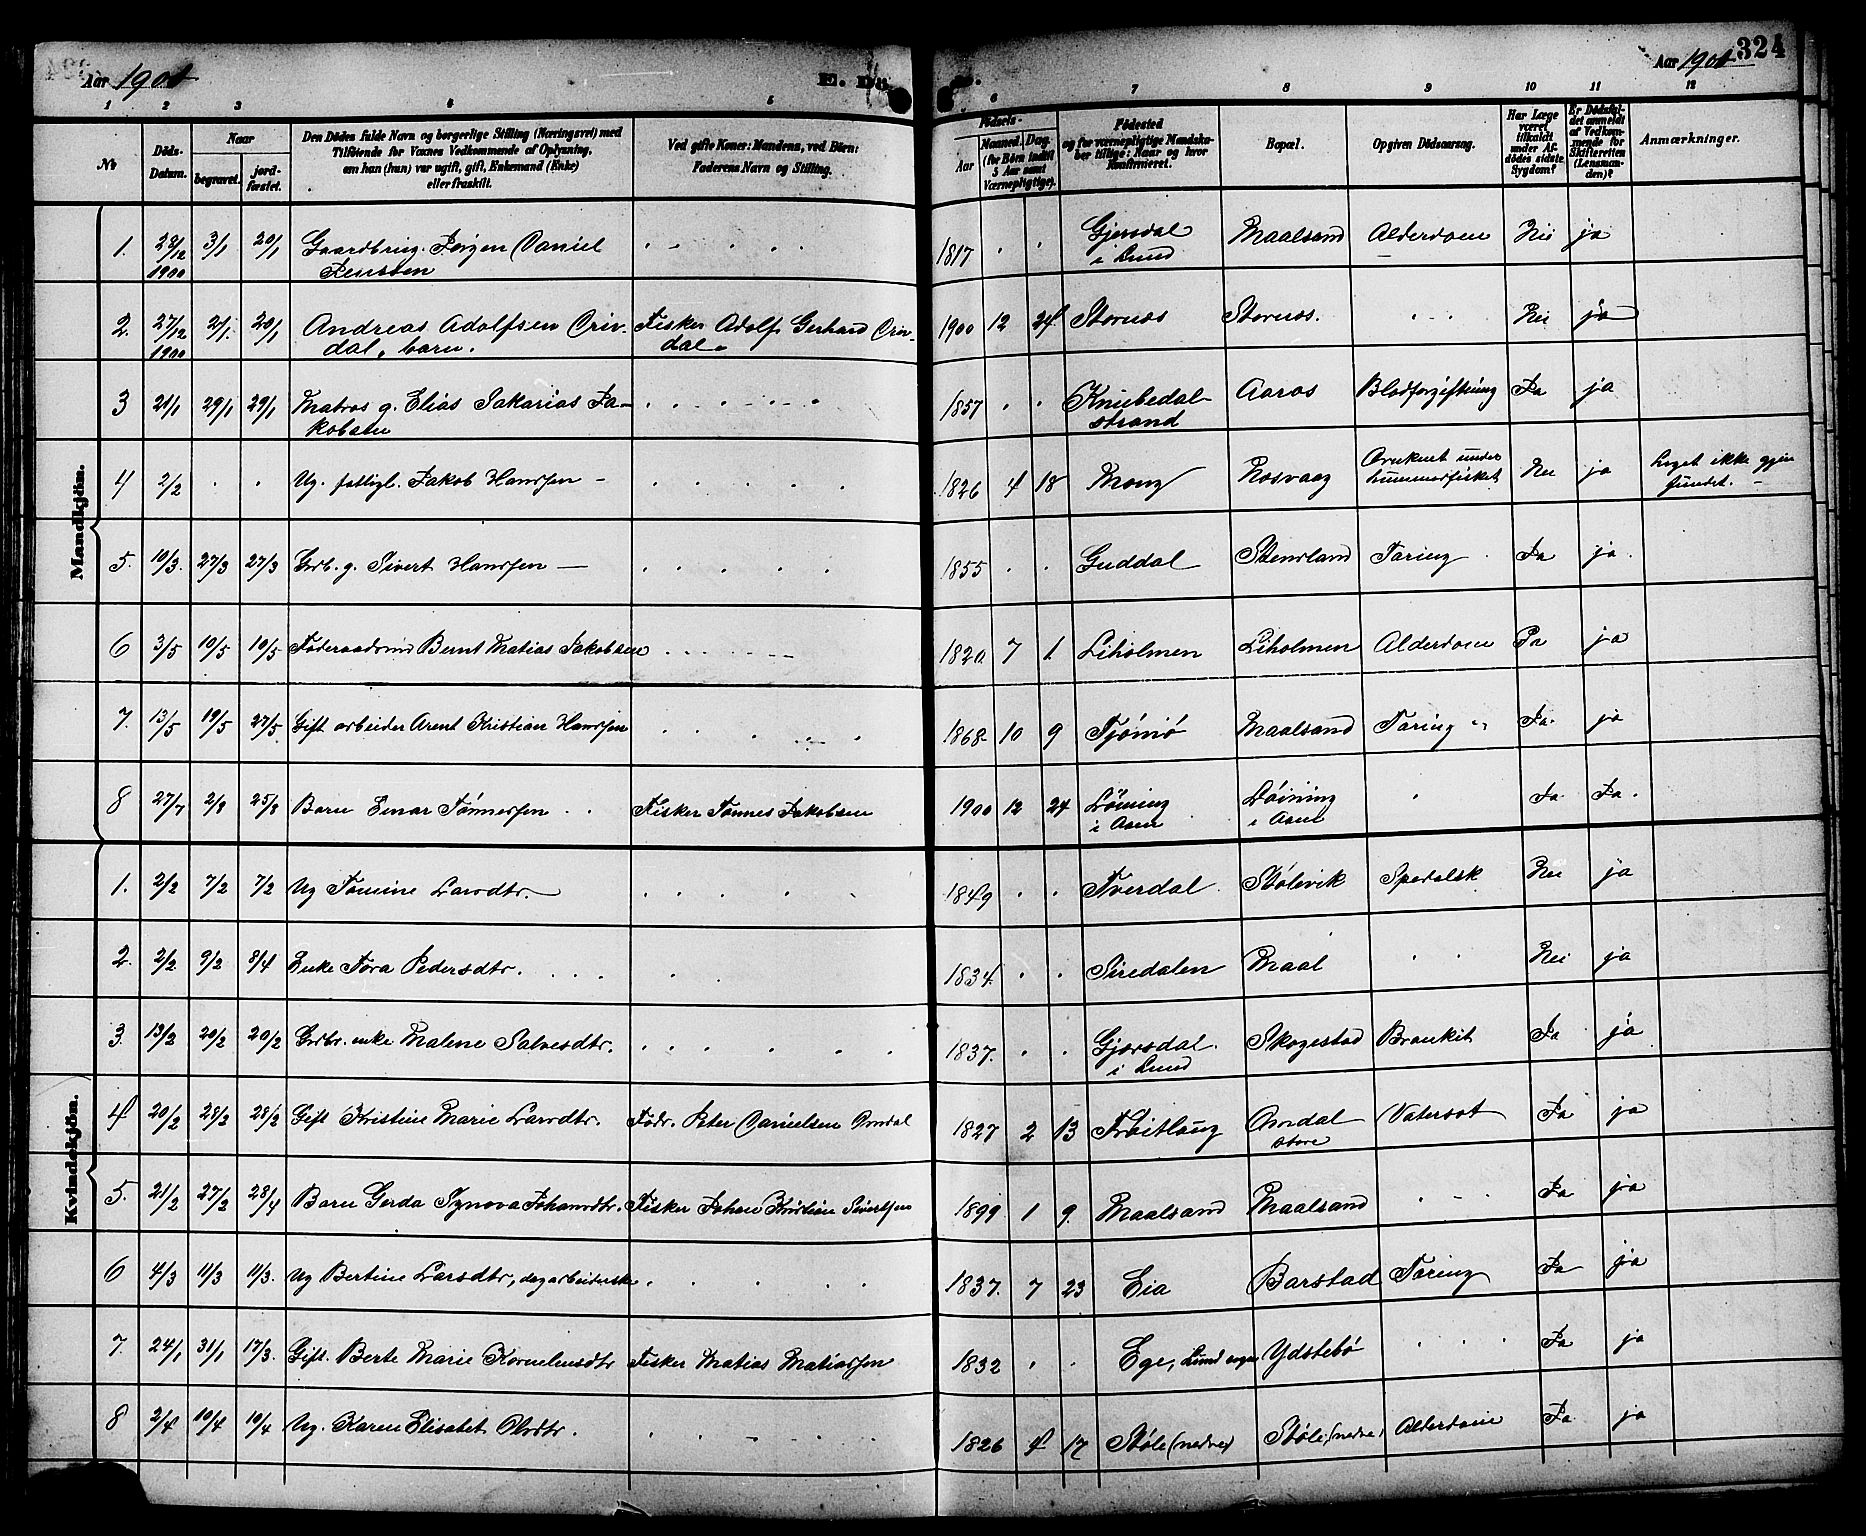 Aar 1901
E. Dö
de.
Aar 1901
324
1 2 3 4 5 6 7 8 9 10 11 12
No
Døds-Datum.
Naar
begravet.
jord-fæstet.
Den Dødes fulde Navn og borgerlige Stilling (Næringsvei) med
Tilføiende for Voxnes Vedkommende af Oplysning,
om han (hun) var ugift, gift, Enkemand (Enke)
eller fraskilt.
Ved gifte Koner: Mandens, ved Börn:
Faderens Navn og Stilling.
Fødsels-
Aar
Maaned. Dag.
(for Börn indtil
5 Aar samt
Værnepligtige).
Fødested
og for værnepligtige Mandska-
ber tillige: Naar og hvor
Konfirmeret.
Bopæl.
Opgiven Dödsaarsag.
Har Læge
været
tilkaldt
under Af-
dødes sidste
Sygdom?
Er Dödsfal-
det anmeldt
af Vedkom-
mende for
Skifteretten
(Lensman-
den)?
Anmærkninger.
Mandkjön.
1. 28/12 1900 3/1 20/1 Gaardbrug. Jörgen Daniel 1817 Gjersdal Maalsand Alderdom Nei ja
Jenssen i Lund
2. 27/12 1900 2/1. 20/1 Andreas Adolfsen Omdal, barn. Fisker Adolf Gerhard Omdal. 1900 12 24 Stornes Stornes. Nei ja
3 21/1 29/1 29/1 Matros g. Elias Sakarias Ja- 1857 Knubedal- Aaros Blodforgiftning Ja ja
kobsen strand
4 2/2 Ug. fattigl. Jakob Hansen 1826 4 18 Mong Rosvaag Druknet under Hummerfisket Nei ja Liget ikke gjen
fundet.
5. 10/3. 27/3 27/3 Grb. g. Sivert Hansen 1855 Guddal Stensland Taring Ja ja.
6 3/5 10/5 10/5 Föderaadsmd Bernt Matias Jakobsen 1820 7 1. Liholmen Liholmen Alderdom Ja ja
7. 13/5 19/5 27/5. Gift arbeider Arent Kristian Hansen 1868 10 9 Tjömö Maalsand Taring Ja. ja
8 27/7 2/8 25/8 Barn Einar Tönnesen Fisker Tönnes Jakobsen 1900 12 24 Löining Löining Ja Ja.
i Aaen i Aaen
Kvindekjön.
1. 2/2 7/2 7/2 Ug Tomine Larsdtr. 1849 Tverdal Stölevik Spedalsk Nei ja
2. 2/2 9/2 8/4 Enke Tora Pedersdtr. 1834. Siredalen Maal Nei ja
3. 13/2 20/2 20/2 Grdbr. enke Malene Salvesdtr. 1837. Gjersdal. Skogestad Bronkit Ja ja
i Lund
4 20/2 28/2 28/2 Gift Kristine Marie Larsdtr. Födr. Peter Danielsen Omdal 1827 2 13 Tröitlaug Omdal Vatersot Ja ja
store
5. 21/2 27/2 28/4 Barn Gerda Synova Johansdtr. Fisker Johan Kristian Sivertsen 1899 1 9. Maalsand Maalsand Ja ja
6 4/3 11/3 11/3. Ug Bertine Larsdtr, dagarbeiderske 1837. 7 23 Eia Barstad Taring Ja ja
7. 24/1 31/1 17/3. Gift. Berte Marie Korneliusdtr Fisker Matias Matiassen 1832 Ege, Lund sogn Ydstebö Ja ja
8 2/4 10/4 10/4 Ug. Karen Elisabet Olsdtr. 1826 4 17 Stöle (nedre) Stöle (nedre) Alderdom Ja ja